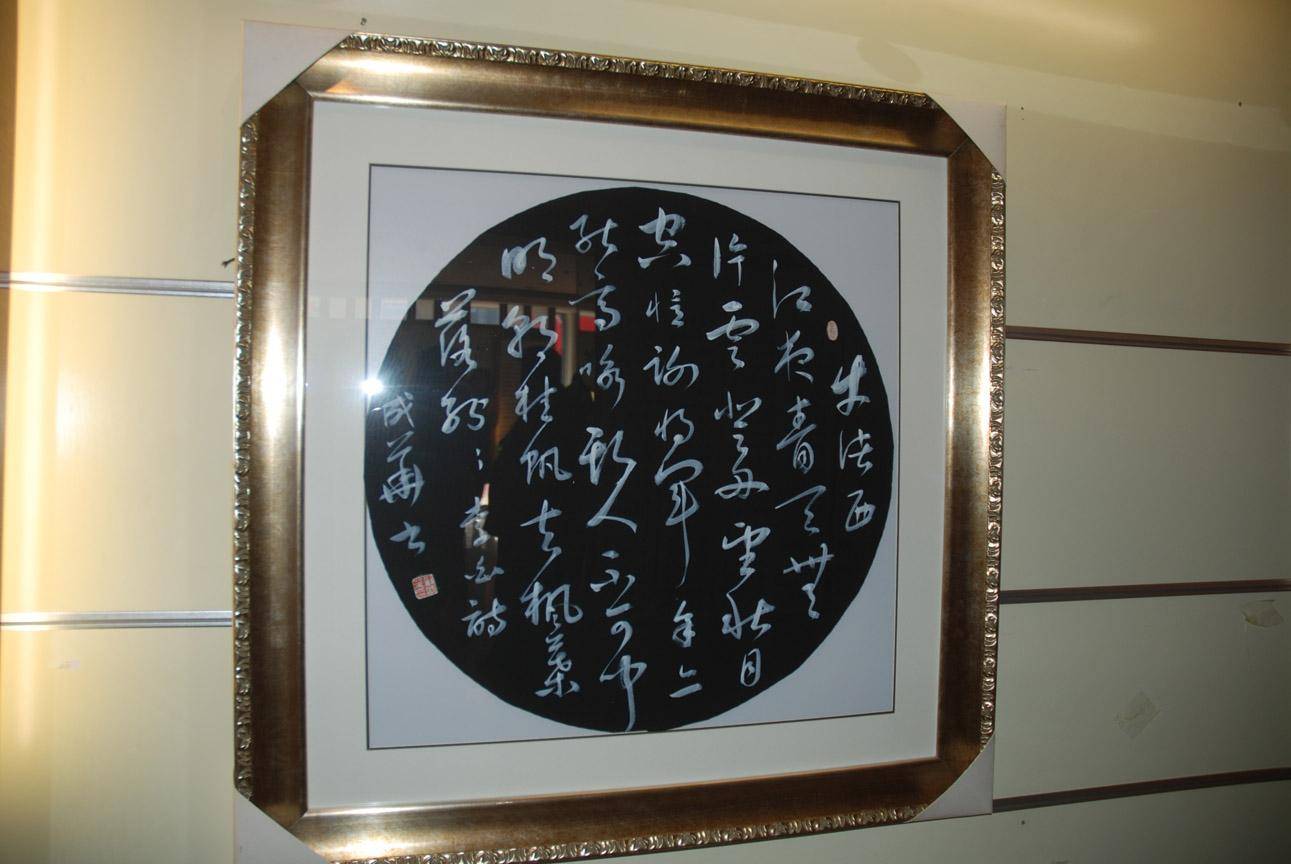 牛渚西
江夜青天無
片雲登舟望秋月
空憶謝將軍余亦
能高詠斯人不可聞
明朝挂帆去楓葉
落紛〻李白詩
成華书